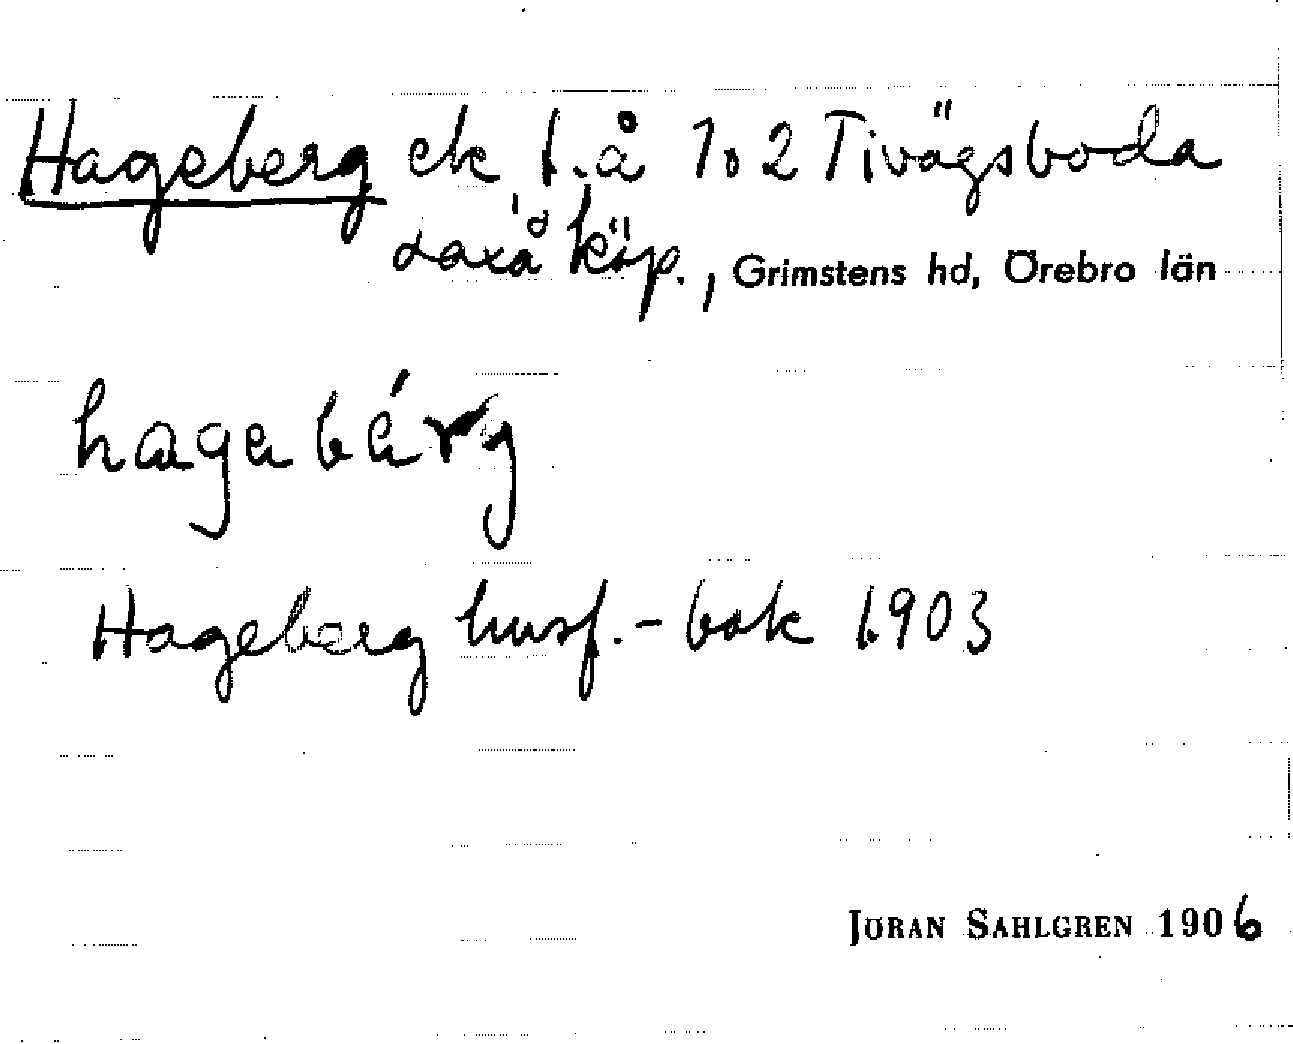 Hageberg ek t.å 1o2 Tivägsboda
Laxå köp., Grimstens hd, Örebro län
hagabárg
Hageberg husf.-bok 1903
JÖRAN SAHLGREN 1906